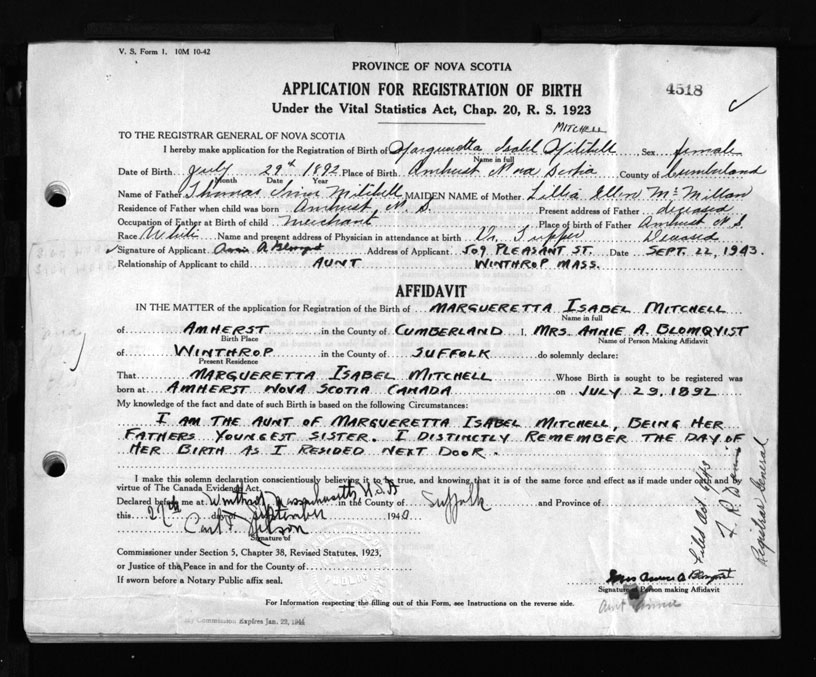 V. S. Form 1. 10M 10-42
PROVINCE OF NOVA SCOTIA
4518
APPLICATION FOR REGISTRATION OF BIRTH
Under the Vital Statistics Act, Chap. 20, R. S. 1923
MITCHELL
TO THE REGISTRAR GENERAL OF NOVA SCOTIA
I hereby make application for the Registration of Birth of Margueretta Isabel Mitchell Sex female
Name in full
Date of Birth July 29th 1892 Place of Birth Amherst Nova Scotia County of Cumberland
Month Date Year
Name of Father Thomas Mitchell MAIDEN NAME of Mother Lillia Ellen McMillan
Residence of Father when child was born Amherst N. S. Present address of Father deceased
Occupation of Father at Birth of child Merchant Place of birth of Father Amherst N.S.
Race White Name and present address of Physician in attendance at birth Dr. Tupper Deceased
Signature of Applicant Annie A Blomqvist Address of Applicant 509 PLEASANT ST. Date SEPT. 22, 1943.
Relationship of Applicant to child AUNT WINTHROP MASS.
AFFIDAVIT
IN THE MATTER of the application for Registration of the Birth of MARGUERETTA ISABEL MITCHELL
Name in full
of AMHERST in the County of CUMBERLAND I, MRS. ANNIE A. BLOMQVIST
Birth Place Name of Person Making Affidavit
of WINTHROP in the County of SUFFOLK do solemnly declare:
Present Residence
That MARGUERETTA ISABEL MITCHELL Whose Birth is sought to be registered was
born at AMHERST NOVA SCOTIA CANADA on JULY 29, 1892
My knowledge of the fact and date of such Birth is based on the following Circumstances:
I AM THE AUNT OF MARGUERETTA ISABEL MITCHELL, BEING HER
FATHERS YOUNGEST SISTER. I DISTINCTLY REMEMBER THE DAY OF
HER BIRTH AS I RESIDED NEXT DOOR.
I make this solemn declaration conscientiously believing it to be true, and knowing that it is of the same force and effect as if made under oath and by
virtue of The Canada Evidence Act.
Declared before me at Winthrop Massachusetts U.S.A in the County of Suffolk and Province of
this 27th day of September 194
Carl F.
Signature of
Commissioner under Section 5, Chapter 38, Revised Statutes, 1923,
or Justice of the Peace in and for the County of
If sworn before a Notary Public affix seal.
Mrs Annie A Blomqvist
Signature of Person making Affidavit
Aunt Annie
For Information respecting the filling out of this Form, see Instructions on the reverse side.
My Commission Expires Jan. 22, 1944
Filed Oct 9/43
Registrar General